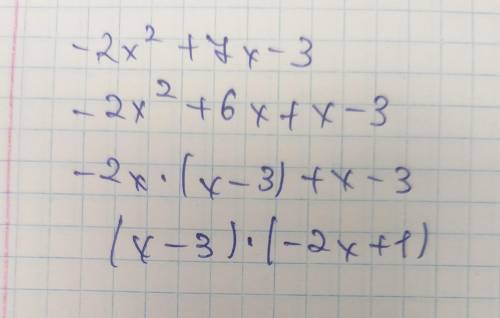 -2x² + 7x - 3
-2x² + 6x + x - 3
-2x · (x - 3) + x - 3
(x - 3) · (-2x + 1)